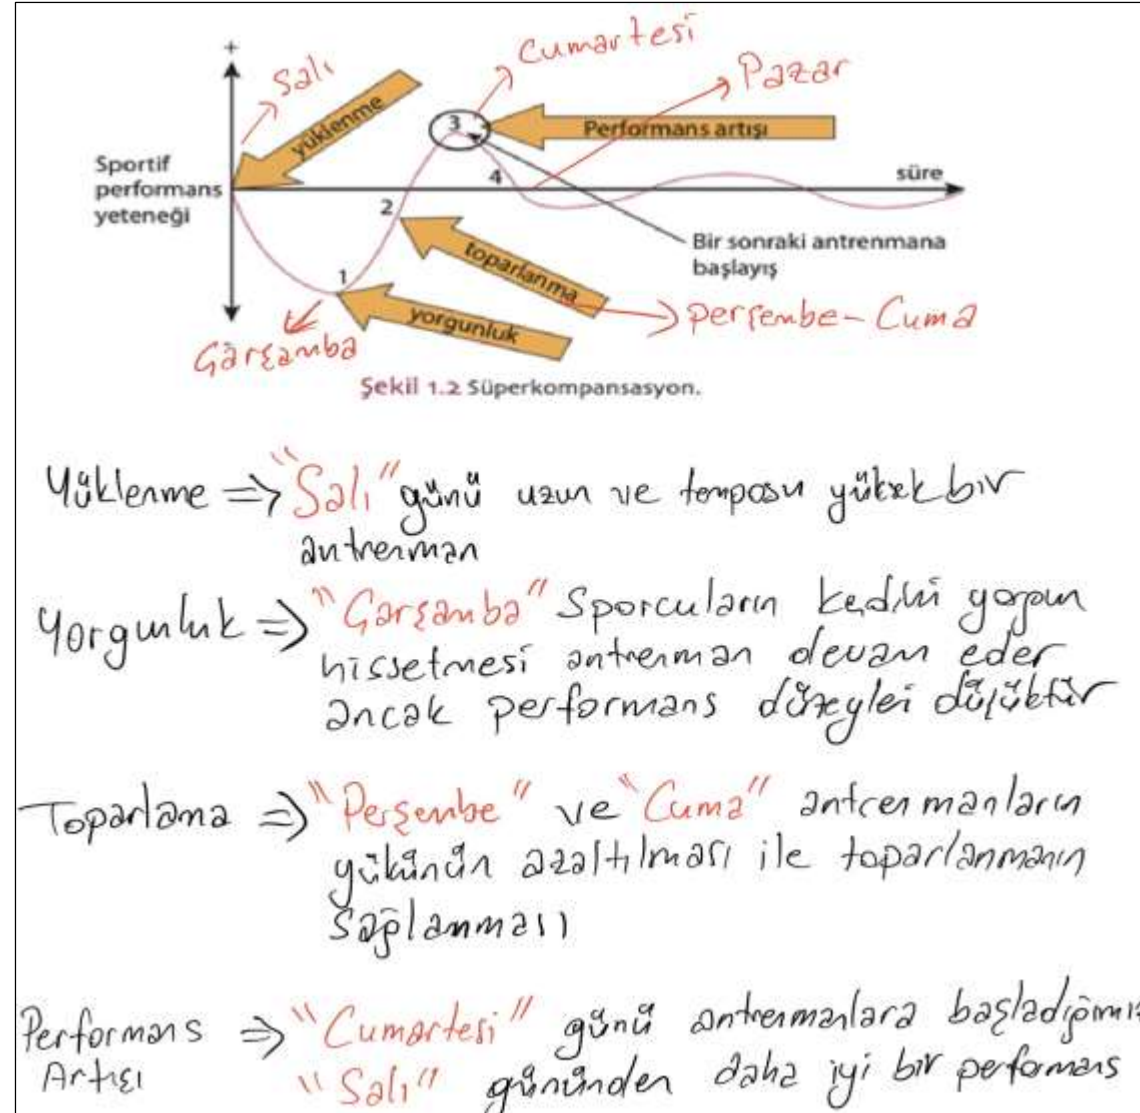 +
Salı
Cumartesi
Pazar
yüklenme
3
Performans artışı
Sportif
performans
yeteneği
süre
4
2
Bir sonraki antrenmana
başlayış
toparlanma
1
Perşembe - Cuma
yorgunluk
Çarşamba
Şekil 1.2 Süperkompansasyon.
Yüklenme => "Salı" günü uzun ve temposu yüksek bir
antrenman
Yorgunluk => "Çarşamba" Sporcuların kedini yorgun
hissetmesi antrenman devam eder
ancak performans düzeyleri düşüktür
Toparlama => "Perşembe" ve "Cuma" antrenmanların
yükünün azaltılması ile toparlanmanın
sağlanması
Performans => "Cumartesi" günü antrenmanlara başladığımız
Artışı "Salı" gününden daha iyi bir performans